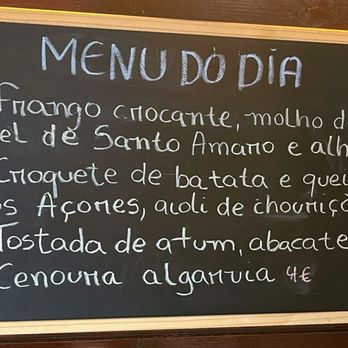 MENU DO DIA
Frango crocante, molho d
el de Santo Amaro e alh
Croquete de batata e quei
os Açores, aioli de chouriç
Tostada de atum, abacate
Cenoura algarvia 4€